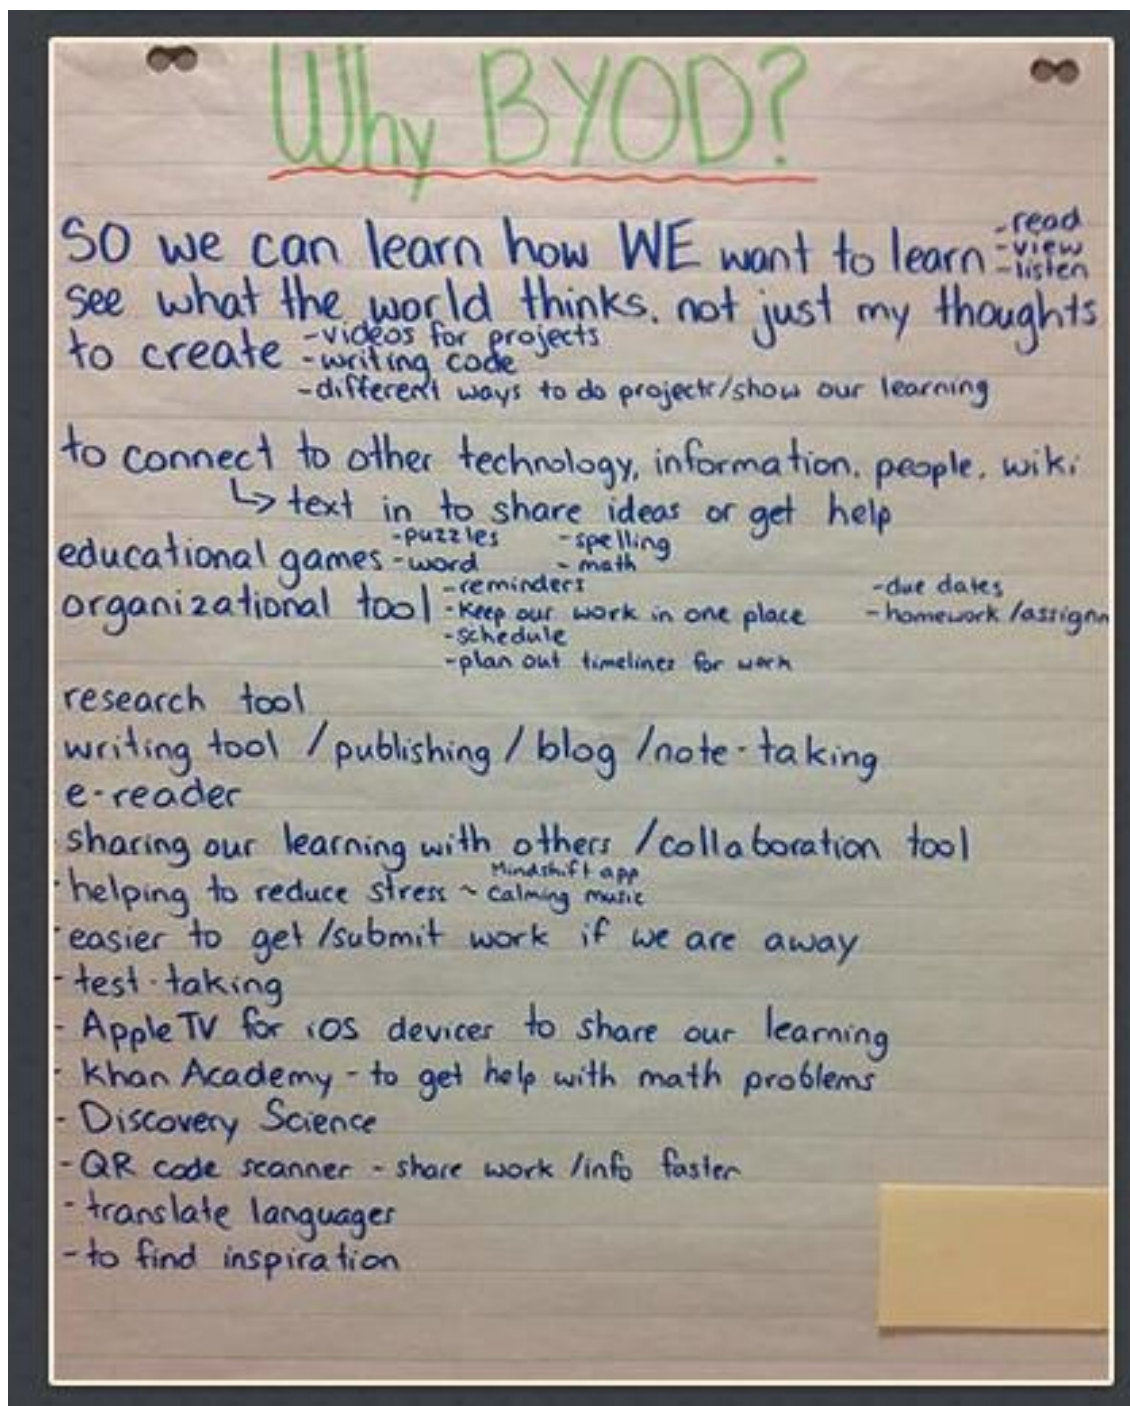 Why BYOD?
SO we can learn how WE want to learn -read
-view
-listen
see what the world thinks, not just my thoughts
to create -videos for projects
-writing code
-different ways to do projects/show our learning
to connect to other technology, information, people, wiki
↳ text in to share ideas or get help
educational games -puzzles -spelling
-word -math
organizational tool -reminders -due dates
-Keep our work in one place -homework/assignm
-schedule
-plan out timelines for work
research tool
writing tool / publishing / blog /note-taking
e-reader
sharing our learning with others /collaboration tool
-helping to reduce stress ~ Mindshift app
Calming music
-easier to get/submit work if we are away
-test-taking
- Apple TV for iOS devices to share our learning
- Khan Academy - to get help with math problems
- Discovery Science
-QR code scanner - share work /info faster
-translate languages
-to find inspiration